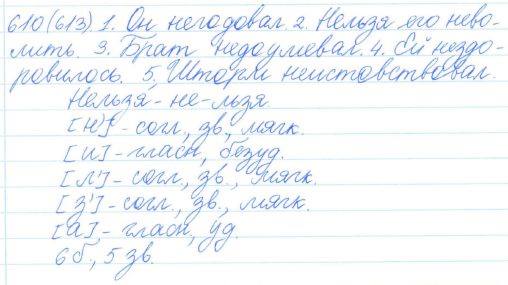 610(613) 1. Он негодовал. 2. Нельзя его нево-
лить. 3. Брат недоумевал. 4. Ей нездо-
ровилось. 5, Шторм неистовствовал.
Нельзя - не-льзя.
[н'] - согл., зв., мягк.
[и] - гласн., безуд.
[л'] - согл., зв., мягк.
[з'] - согл., зв., мягк.
[а] - гласн., уд.
6 б., 5 зв.